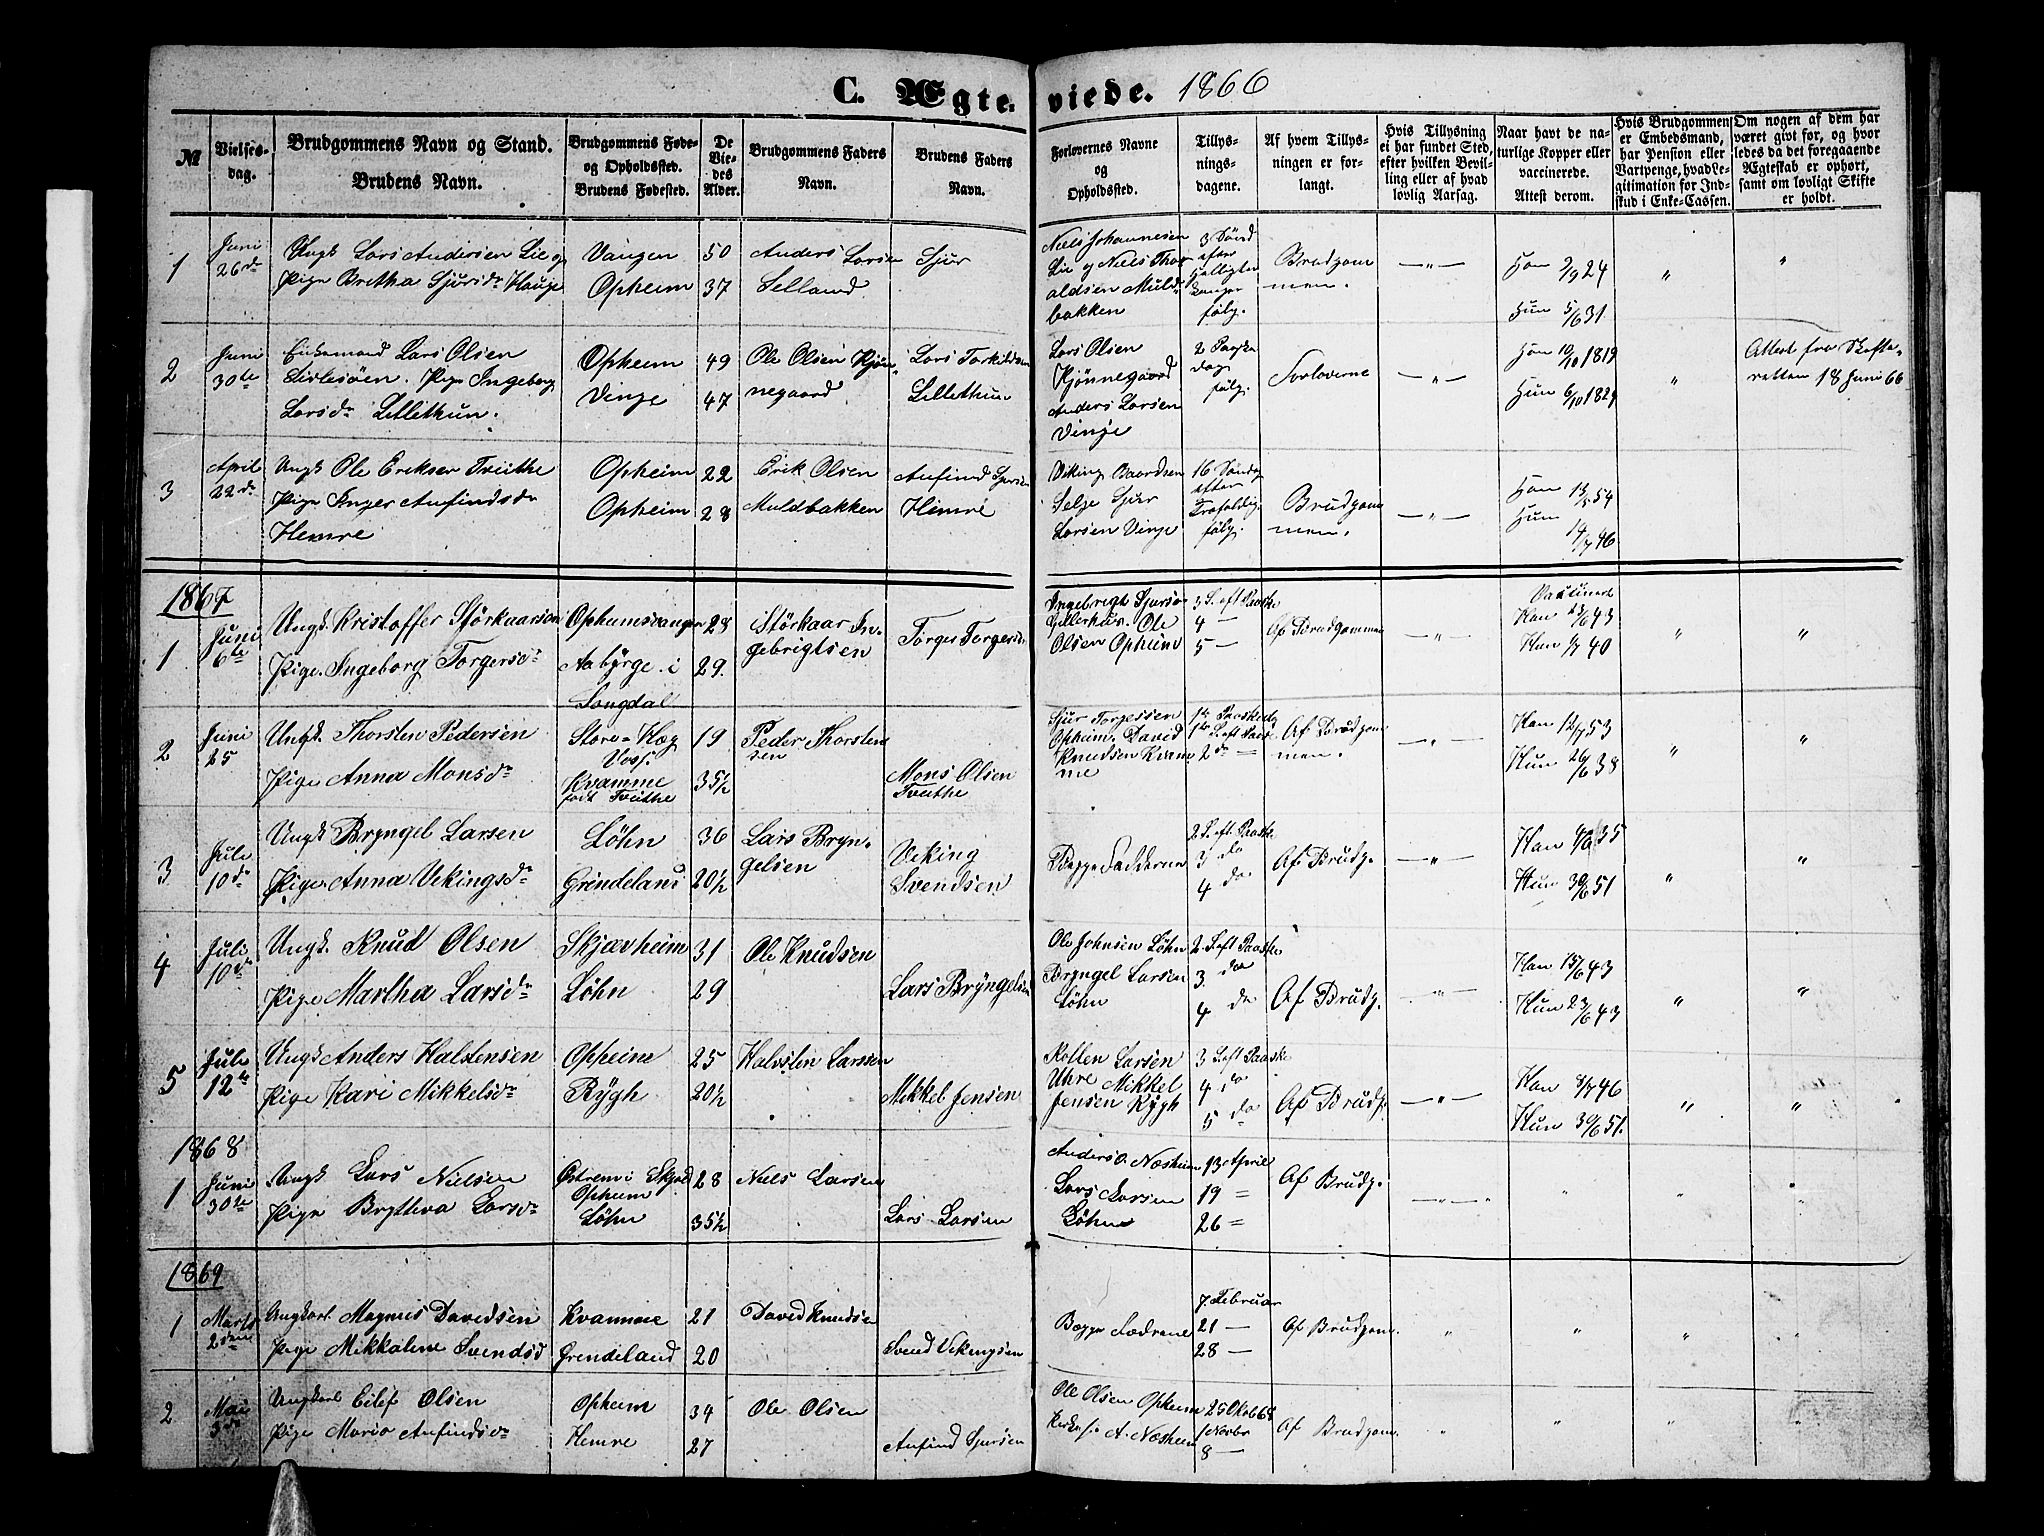 C. Ægteviede. 1866
№
Vielses-
dag.
Brudgommens Navn og Stand.
Brudens Navn.
Brudgommens Føde-
og Opholdssted.
Brudens Fødested.
De
Vie-
des
Alder.
Brudgommens Faders
Navn.
Brudens Faders
Navn.
Forlovernes Navne
og
Opholdssted.
Tillys-
nings-
dagene.
Af hvem Tillys-
ningen er for-
langt.
Hvis Tillysning
ei har fundet Sted,
efter hvilken Bevil-
ling eller af hvad
lovlig Aarsag.
Naar havt de na-
turlige Kopper eller
vaccinerede.
Attest derom.
Hvis Brudgommen
er Embedsmand,
har Pension eller
Vartpenge, hvad Le-
gitimation for Ind-
skud i Enke-Cassen.
Om nogen af dem har
været givt for, og hvor
ledes da det foregaaende
Ægteskab er ophørt,
samt om lovligt Skifte
er holdt.
1
Juni
26de
Ungk Lars Andersen Lie og
Pige Brittha Sjursdr Hauge
Vangen
Opheim
50
37
Anders Larsen
Selland
Sjur
Niels Johannesen
Lie og Niels Thor
aldsen Muld-
bakken
3 Sønd
efter
Helligtre
konger
følg.
Brudgom
men.
Han 9/9 24
Hun 5/6 31
2
Juni
30te
Enkemand Lars Olsen
Lislesøen. Pige Ingeborg
Larsdr Lillethun.
Opheim
Vinge
49
47
Ole Olsen Kjøn-
negaard
Lars Torkildsen
Lillethun
Lars Olsen
Kjønnegaard
Anders Larsen
Vinje
2 Paaske
dag
følg.
Forloverne
Han 10/10 1819
Hun 6/10 1829
Attest fra Skifte-
retten 18 Juni 66
3
April
22de
Ungk Ole Eriksen Tveithe
Pige Inger Anfindsdr
Hemre
Opheim
Opheim
22
28
Erik Olsen
Muldbakken
Anfind Sjursen
Himre
Viking Baardsen
Selje Sjur
Larsen Vinje
16 Søndag
efter
Trefoldig.
følg.
Brudgom
men.
Han 54
Hun
46
1867
1
Juni
6te
Ungk. Kristoffer Størkaarsen
Pige. Ingeborg Torgersdr
Opheimsvangen
Aabyrge. i
Songdal
28
29.
Størkaar In-
gebrigtsen
Torger Torgersen
Ingebrigt Sjursø
Gillerhus. Ole
Olsen Opheim
3 S. eft Paaske
4 —
5 —
Af Brudgommen
Vaccineret
Han 43
Hun 40
2
Juni
25
Ungk. Thorsten Pedersen
Pige Anna Monsdr
Store-Hæg
Voss.
Kvamme
født Tveithe
19
35½
Peder Thorsten
sen
Mons Olsen
Tveithe
Sjur Torgessen
Opheim. David
Knudsen Kvam
me
1te Paaskedg
1te S. eft Paask
2de —
Af Brudgom
men.
Han 12/7 53
Hun 26/6 38
3
Juli
10de
Ungk Bryngel Larsen
Pige Anna Vekingsdr
Løhn
Grindeland
36
20½
Lars Bryn-
gelsen
Veking
Svendsen
Begge Fædrene
2 S. eft Paaske
3 do
4 do
Af Brudg.
Han 35
Hun 30/6 51
4
Juli
10de
Ungk. Knud Olsen
Pige Martha Larsdr
Skjærheim
Løhn
31
29
Ole Knudsen
Lars Bryngelsen
Ole Johnsen Løhn
Bryngel Larsen
Løhn
2 S. eft Paaske
3. do
4 do
Af Brudg.
Han 15/6 43
Hun 23/6 43
5
Juli
12te
Ungk Anders Halstensen
Pige Kari Mikkelsdr
Opheim
Rygh
25
20½
Halvsten Larssen
Mikkel Jensen
Rollen Larsen
Uhre Mikkel
Jensen Rygh
3 S. eft Paaske
4 do
5 do
Af Brudg.
Han 8/7 46
Hun 30/6 51.
1868
1
Juni
30te
Ungk Lars Nielsen
Pige Brytheva Larsdr
Østrem i Skjold
Opheim
Løhn
28
35½
Niels Larsen
Lars Larsen
Anders O. Næsheim
Lars Larsen
Løhn
13 April
19 =
26 =
Af Brudg.
1869
1
Marts
2den
Ungkarl Magnus Davidsen
Pige Mikkaline Svendsd
Kvamme
Grendeland
21
20
David Knudsen
Svend Vekingsen
Begge Fædrene
7. Februar
21 —
28 —
Af Brudgom.
2
Mai
3de
Ungkarl Eilef Olsen
Pige Maria Anfindsdr
Opheim
Hemre
34
27
Ole Olsen
Anfind Sjursen
Ole Olsen Opheim
A. Næsheim
25 Okob 68
1 Novbr
8 —
Af Brudgom.